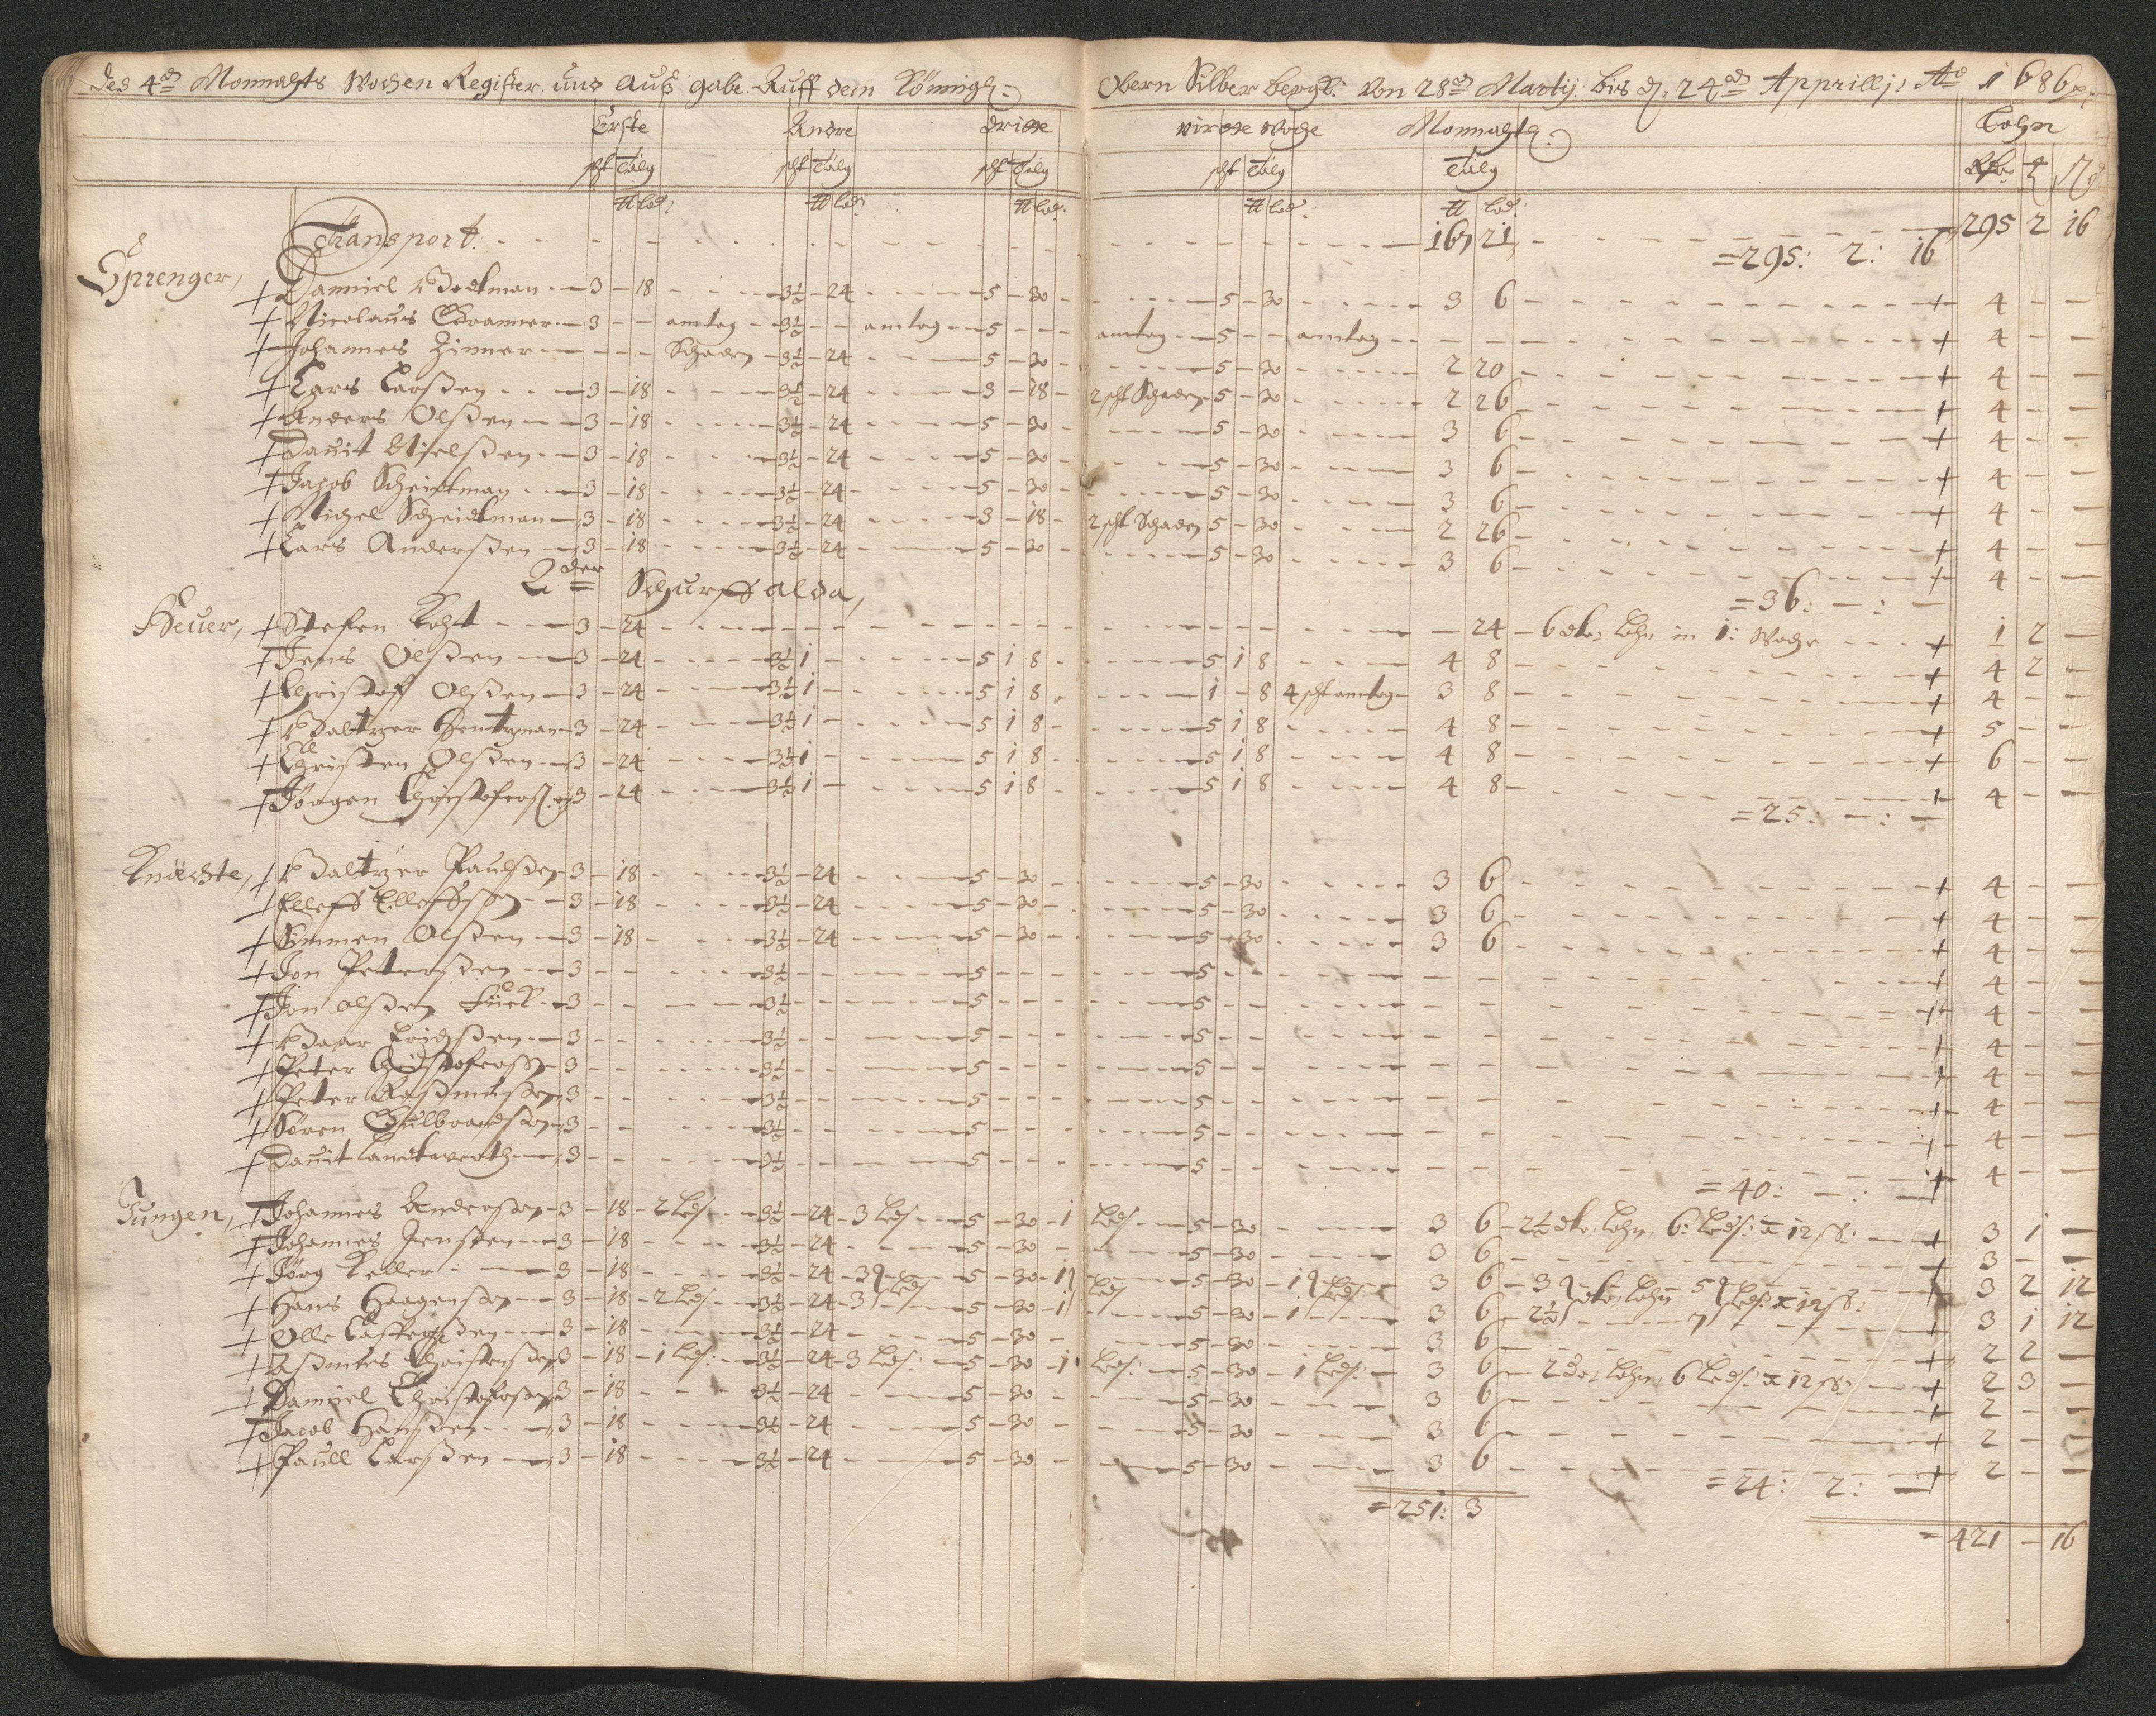 Des 4ds Monnahts Wochen Register und Auß gabe Auff dem Königl:
Obern Silber bergk: Von 28ds Martij: bis d: 24ds Apprillj: Ao 1686
Erste Andre dritte virte Woche Monnahtl: Lohn
scht Talg scht Talg scht Talg scht Talg Talg
℔ lod: ℔ lod: ℔ lod: ℔ lod: ℔ lod:
Transport. 167 21 =295: 2: 16 295 2 16
Sprenger,
+ Danniel Bockman 3 - 18 3½ - 24 5 - 30 5 - 30 3 6 + 4 - -
+ Nicolaus 3 - - 3½ - - 5 - - 5 - - + 4 - -
+ Johannes Zinner - Schaden 3½ - 24 5 - 30 5 - 30 2 20 + 4 - -
+ Lars Larßen 3 - 18 3½ - 24 3 - 18 2 scht Schaden 5 - 30 2 26 + 4 - -
+ Anders Olßen 3 - 18 3½ - 24 5 - 30 5 - 30 3 6 + 4 - -
+ Dauit Nielßen 3 - 18 3½ - 24 5 - 30 5 - 30 3 6 + 4 - -
+ Jacob Scheidtman 3 - 18 3½ - 24 5 - 30 5 - 30 3 6 + 4 - -
+ Michel Scheidtman 3 - 18 3½ - 24 3 - 18 2 scht Schaden 5 - 30 2 26 + 4 - -
+ Lars Anderßen 3 - 18 3½ - 24 5 - 30 5 - 30 3 6 + 4 - -
2der Schurff alda, =36: -: -
Heuer,
+ Stefen Koht 3 - 24 - 24 - 6 Lohn in 1: Woche + 1 2 -
+ Jens Olßen 3 - 24 3½ 1 - 5 1 8 5 1 8 4 8 + 4 2 -
+ Christoff Olßen 3 - 24 3½ 1 - 5 1 8 1 - 8 4 scht 3 8 + 4 - -
+ Baltzer Hentzman 3 - 24 3½ 1 - 5 1 8 5 1 8 4 8 + 5 - -
+ Christen Olßen 3 - 24 3½ 1 - 5 1 8 5 1 8 4 8 + 6 - -
+ Jörgen Christoferß. 3 - 24 3½ 1 - 5 1 8 5 1 8 4 8 + 4 - -
=25: -: -
Knächte,
+ Baltzer Paulßen 3 - 18 3½ - 24 5 - 30 5 - 30 3 6 + 4 - -
+ Elleff Elleffßen 3 - 18 3½ - 24 5 - 30 5 - 30 3 6 + 4 - -
+ Simmen Olßen 3 - 18 3½ - 24 5 - 30 5 - 30 3 6 + 4 - -
+ Jon Peterßen 3 - - 3½ - - 5 - - 5 - - + 4 - -
+ Jon olßen 3 - - 3½ - - 5 - - 5 - - + 4 - -
+ Baar Erichßen 3 - - 3½ - - 5 - - 5 - - + 4 - -
+ Peter Christoferß 3 - - 3½ - - 5 - - 5 - - + 4 - -
+ Peter Raßmußen 3 - - 3½ - - 5 - - 5 - - + 4 - -
+ Sören Gulbrandßen 3 - - 3½ - - 5 - - 5 - - + 4 - -
+ Dauit Landtwerth 3 - - 3½ - - 5 - - 5 - - + 4 - -
=40: -: -
Jungen,
+ Johannes Anderßen 3 - 18 - 2 Leds 3½ - 24 - 3 Leds 5 - 30 - 1 Leds 5 - 30 3 6 - 2½ Lohn, 6: Leds: a 12 ß: + 3 1 -
+ Johannes Jenßen 3 - 18 3½ - 24 5 - 30 5 - 30 3 6 + 3 - -
+ Jörg Keller 3 - 18 3½ - 24 - 3 Leds 5 - 30 - 1 Leds 5 - 30 - 1 Leds 3 6 - 3 Lohn 5 Leds: a 12 ß: + 3 2 12
+ Hans Haagenßen 3 - 18 - 2 Leds 3½ - 24 - 3 5 - 30 - 1 5 - 30 - 1 3 6 - 2½ 7 + 3 1 12
+ Olle Casperßen 3 - 18 3½ - 24 5 - 30 5 - 30 3 6 + 2 2 -
+ Aßmus Christenßen 3 - 18 - 1 Leds: 3½ - 24 - 3 Leds: 5 - 30 - 1 Leds: 5 - 30 - 1 Leds: 3 6 - 2 Lohn, 6 Leds: a 12 ß: + 2 3 -
+ Damiel Christoferßen 3 - 18 3½ - 24 5 - 30 5 - 30 3 6 + 2 - -
+ Jacob Hanßen 3 - 18 3½ - 24 5 - 30 5 - 30 3 6 + 2 - -
+ Paull Larßen 3 - 18 3½ - 24 5 - 30 5 - 30 3 6 + 2 - -
=24: 2: -
=251: 3
=421 - 16